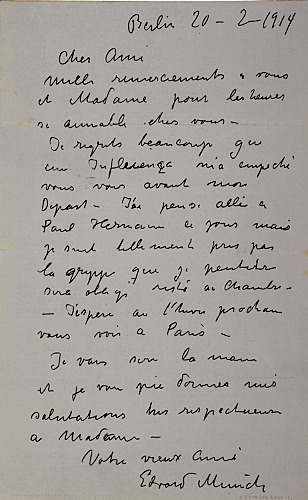 Berlin 20 - 2 - 1914
Cher Ami
Mille remerciements a vous
et Madame pour les heures
si amiable chez vous -
Je regrets beaucoup que
un Influenza m'a empeché
vous voir avant mon
Depart - J'ai pensé allé a
Paul Hermann ce jours mais
je suis tellement pris pas
la grippe que je
sera obligé resté au Chambre -
- J'espere au l'hiver prochain
vous voir a Paris -
Je vous serre la main
et je vous prie donner mes
salutations tres respectueux
a Madame -
Votre vieux ami
Edvard Munch